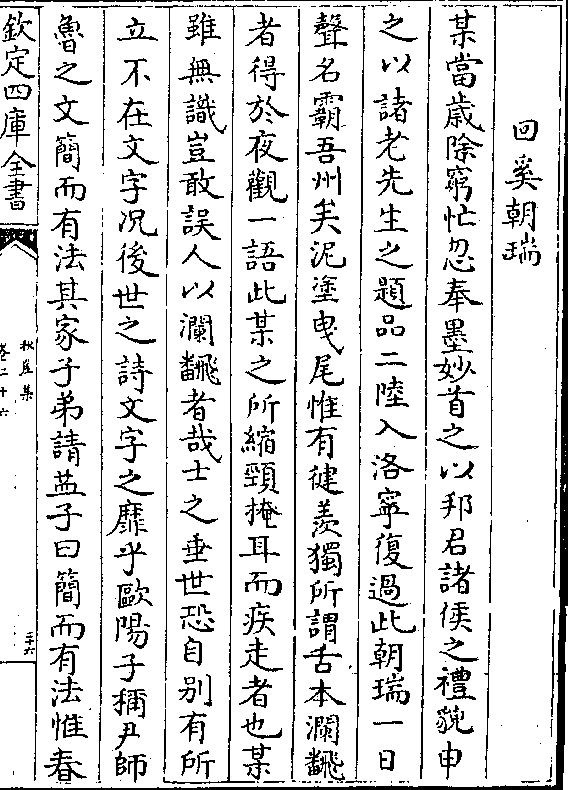 回奚朝瑞
某當歳除窮忙忽奉墨妙首之以邦君諸侯之禮貌申
之以諸老先生之題品二陸入洛寧復過此朝瑞一日
聲名霸吾州矣泥塗曳尾惟有健羨獨所謂舌本瀾翻
者得於夜觀一語此某之所縮頸掩耳而疾走者也某
雖無識豈敢誤人以瀾翻者哉士之垂世恐自别有所
立不在文字况後世之詩文字之靡乎歐陽子稱尹師
魯之文簡而有法其家子弟請益子曰簡而有法惟春
欽定四庫全書
秋崖集
卷二十六
三六